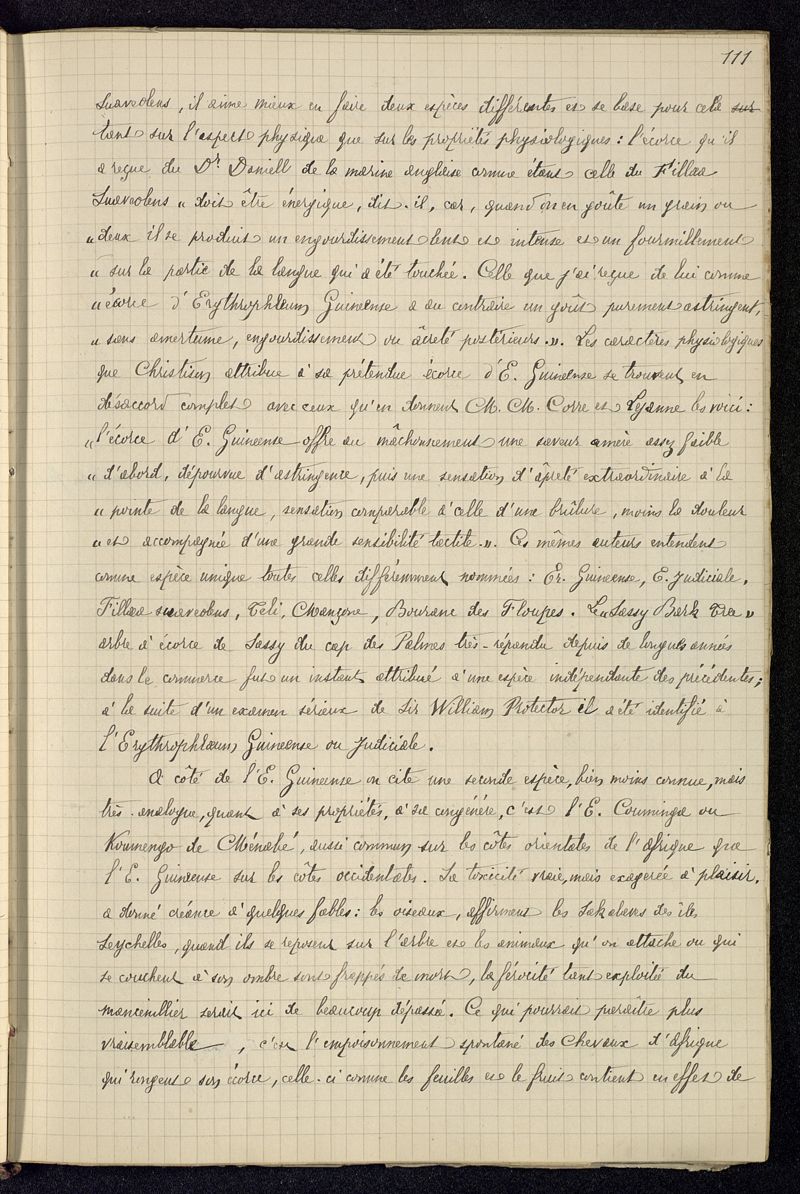 111
Suaveolens, il aime mieux en faire deux espèces différentes et se base pour cela sur
tant sur l'aspect physique que sur les propriétés physiologiques : l'écorce qu'il
a reçue du Dr. Daniell de la marine anglaise comme étant celle du Fillœa
Suaveolens « doit être énergique, dit-il, car, quand on en goûte un grain ou
« deux il se produit un engourdissement lent et intense et un fourmillement
« sur la partie de la langue qui a été touchée. Celle que j'ai reçue de lui comme
« écorce d'Erythrophlœum Guineense a au contraire un goût purement astringent,
« sans amertume, engourdissement ou âcreté postérieurs. ». Les caractères physiologiques
que Christison attribue à sa prétendue écorce d'E. Guineense se trouvent en
désaccord complet avec ceux qu'en donnent M. M. Corre et Lejanne les voici :
« l'écorce d'E. Guineense offre au mâchonnement une saveur amère assez faible
« d'abord, dépourvue d'astringence, puis une sensation d'âpreté extraordinaire à la
« pointe de la langue, sensation comparable à celle d'une brûlure, moins la douleur
« et accompagnée d'une grande sensibilité tactile. ». Ces mêmes auteurs entendent
comme espèce unique toutes celles différemment nommées : Er. Guineense, E. Judiciale,
Fillœa suaveolens, Teli, Mançone, Bourane des Floupes. Le « Sassy Bark Tree »
arbre à écorce de Sassy du cap des Palmes très-répandu depuis de longues années
dans le commerce fut un instant attribué à une espèce indépendante des précédentes ;
à la suite d'un examen sérieux de Sir William Protector il a été identifié à
l'Erythrophlœum Guineense ou Judiciale.
A côté de l'E. Guineense on cite une seconde espèce, bien moins connue, mais
très-analogue, quant à ses propriétés, à sa congénère, c'est l'E. Couminga ou
Koumengo de Ménabé, aussi commun sur les côtes orientales de l'Afrique que
l'E. Guineense sur les côtes occidentales. Sa toxicité vraie, mais exagérée à plaisir,
a donné créance à quelques fables : les oiseaux, affirment les Sakalaves des îles
Seychelles, quand ils se reposent sur l'arbre et les animaux qu'on attache ou qui
se couchent à son ombre sont frappés de mort, la férocité tant exploitée du
mancenillier serait ici de beaucoup dépassée. Ce qui pourrait paraître plus
vraisemblable, c'est l'empoisonnement spontané des chevaux d'Afrique
qui rongent son écorce, celle-ci comme les feuilles et le fruit contient en effet de